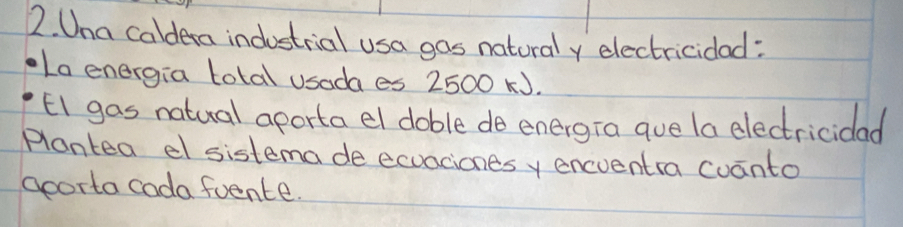 2. Una caldera industrial usa gas natural y electricidad:
• La energía total usada es 2500 kJ.
• El gas natural aporta el doble de energía que la electricidad
Plantea el sistema de ecuaciones y encuentra cuánto
aporta cada fuente.